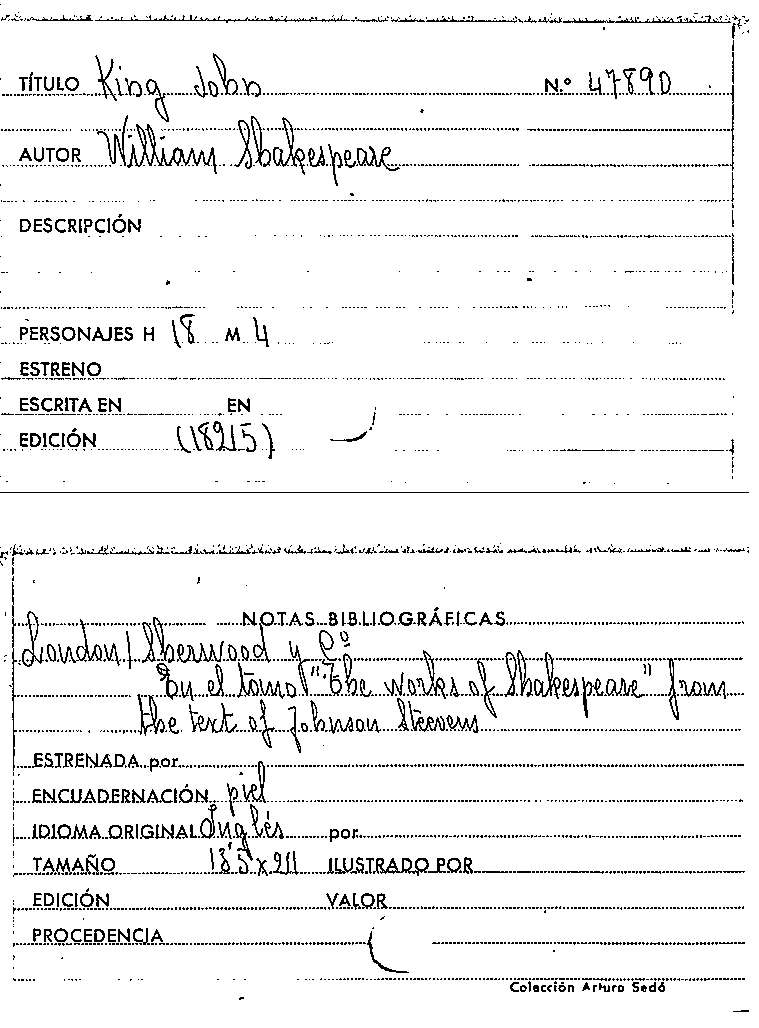 TÍTULO King John N.º 47890
AUTOR William Shakespeare
DESCRIPCIÓN
PERSONAJES H 18 M 4
ESTRENO
ESCRITA EN EN
EDICIÓN
NOTAS BIBLIOGRÁFICAS
London / Sherwood y Cº
En el tomo "The works of Shakespeare" from
the text of Johnson Steevens
ESTRENADA por
ENCUADERNACIÓN piel
IDIOMA ORIGINAL Inglés por
TAMAÑO ILUSTRADO POR
EDICIÓN VALOR
PROCEDENCIA
Colección Arturo Sedó